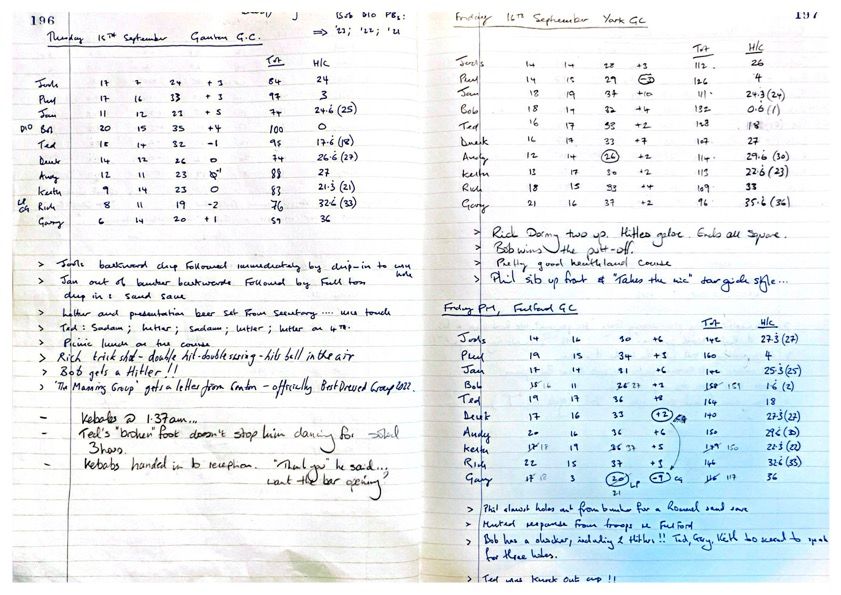 196
Bob D10 PBs:
=> '23; '22; '21
Thursday 15TH September Ganton G.C.
Tot H/C
Jools 17 7 24 +3 84 24
Phil 17 16 33 +3 97 3
Jan 11 12 23 +5 74 24.6 (25)
D10 Bob 20 15 35 +4 100 0
Ted 18 14 32 -1 95 17.6 (18)
Derek 14 12 26 0 74 26.6 (27)
Andy 12 11 23 88 27
Keith 9 14 23 0 83 21.3 (21)
LP CG Rich 8 11 19 -2 76 32.6 (33)
Gary 6 14 20 +1 59 36
> Jools backward chip followed immediately by chip-in to win hole
> Jan out of bunker backwards followed by full toss
chip in 2 sand save
> Letter and presentation beer set from Secretary .... nice touch
> Ted: Sadam; hitler; sadam; hitler; hitler on 4th.
> Picnic lunch on the course
> Rich trick shot - double hit - double swing - hits ball in the air
> Bob gets a Hitler!!
> 'The Manning Group' gets a letter from Ganton - officially Best Dressed Group 2022.
- Kebabs @ 1.37am...
- Ted's "broken" foot doesn't stop him dancing for solid
3 hours.
- Kebabs handed in to reception. "Thank you" he said...,
want the bar opening"
197
Friday 16th September York GC
Tot H/C
Jools 14 14 28 +3 112 26
Phil 14 15 29 126 4
Jan 18 19 37 +10 111 24.3 (24)
Bob 18 14 32 +4 132 0.6 (1)
Ted 16 17 33 +2 128 18
Derek 16 17 33 +7 107 27
Andy 12 14 26 +2 114 29.6 (30)
Keith 13 17 30 +2 113 22.6 (23)
Rich 18 15 33 +4 109 33
Gary 21 16 37 +2 96 35.6 (36)
> Rich Dormy two up. Hitler galore. Ends all square.
> Bob wins the putt-off.
> Pretty good heathland course
> Phil sits up front & "Takes the mic" tour guide style...
Friday PM, Fulford GC
Tot H/C
Jools 14 16 30 +6 142 27.3 (27)
Phil 19 15 34 +3 160 4
Jan 17 14 31 +6 142 25.3 (25)
Bob 15 16 11 26 27 +3 158 159 1.6 (2)
Ted 19 17 36 +8 164 18
Derek 17 16 33 +2 CG 140 27.3 (27)
Andy 20 16 36 +6 150 29.6 (30)
Keith 17 19 36 37 +5 149 150 22.3 (22)
Rich 22 15 37 +3 146 32.6 (33)
Gary 17 18 3 20 LP -9 CG 116 117 36
21
> Phil almost holes out from bunker for a Rommel sand save
> Muted response from troops re Fulford
> Bob has a shocker, including 2 Hitlers!! Ted, Gary, Keith too scared to speak
for three holes.
> Ted was Knock Out cup!!